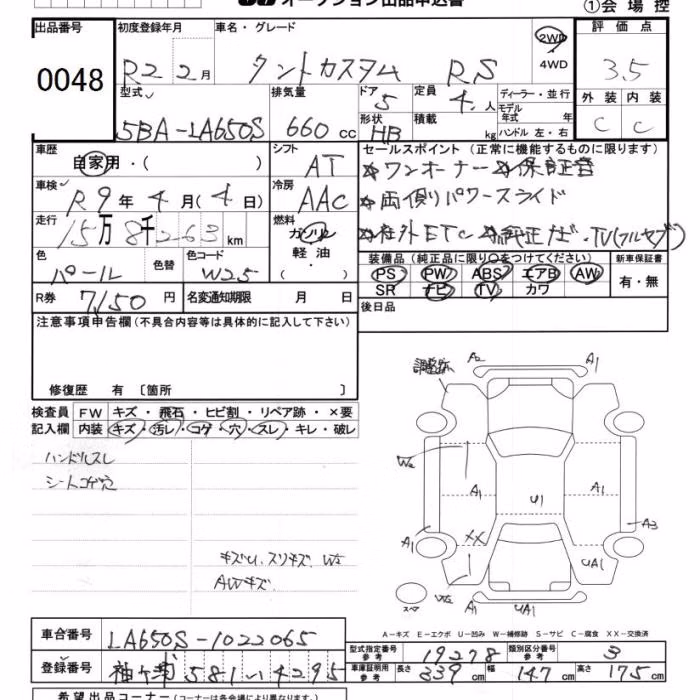 オークション出品申込書
①会場控
出品番号 0048
初度登録年月 R2 2月
車名・グレード タントカスタム RS
2WD 4WD
評価点 3.5
外装 C 内装 C
型式 5BA-LA650S
排気量 660 cc
ドア 5 形状 HB
定員 4人 積載 kg
ディーラー・並行
モデル年式 年
ハンドル 左・右
車歴 自家用・( )
シフト AT
セールスポイント (正常に機能するものに限ります)
☆ワンオーナー ☆保証書
☆両側パワースライド
☆社外ETC ☆純正ナビ・TV(フルセグ)
車検 R9年4月(4日)
冷房 AAC
走行 15万8千263km
燃料 ガソリン 軽油 ・( )
色 パール 色替
色コード W25
装備品 (純正品に限り○をつけてください)
PS PW ABS エアB AW
SR ナビ TV カワ
新車保証書 有・無
R券 7150円
名変通知期限 月 日
後日品
注意事項申告欄 (不具合内容等は具体的に記入して下さい)
修復歴 有 〔箇所 〕
検査員記入欄
FW キズ・飛石・ヒビ割・リペア跡・×要
内装 キズ・汚レ・コゲ・穴・スレ・キレ・破レ
ハンドルスレ
シートコゲ穴
キズU、スリキズ、W2
AWキズ
調整跡 A2 A1
W2 A1 U1 A1
A3
A1 XX UA1
W2 A1 UA1
スペア
A-キズ E-エクボ U-凹み W-補修跡 S-サビ C-腐食 XX-交換済
車台番号 LA650S-1022065
登録番号 袖ヶ浦 581 い 4295
型式指定番号 参考 19278
類別区分番号 参考 3
車庫証明用 参考 長さ 339cm 幅 147cm 高さ 175cm
希望出品コーナー (コーナーは各会場により異なります)